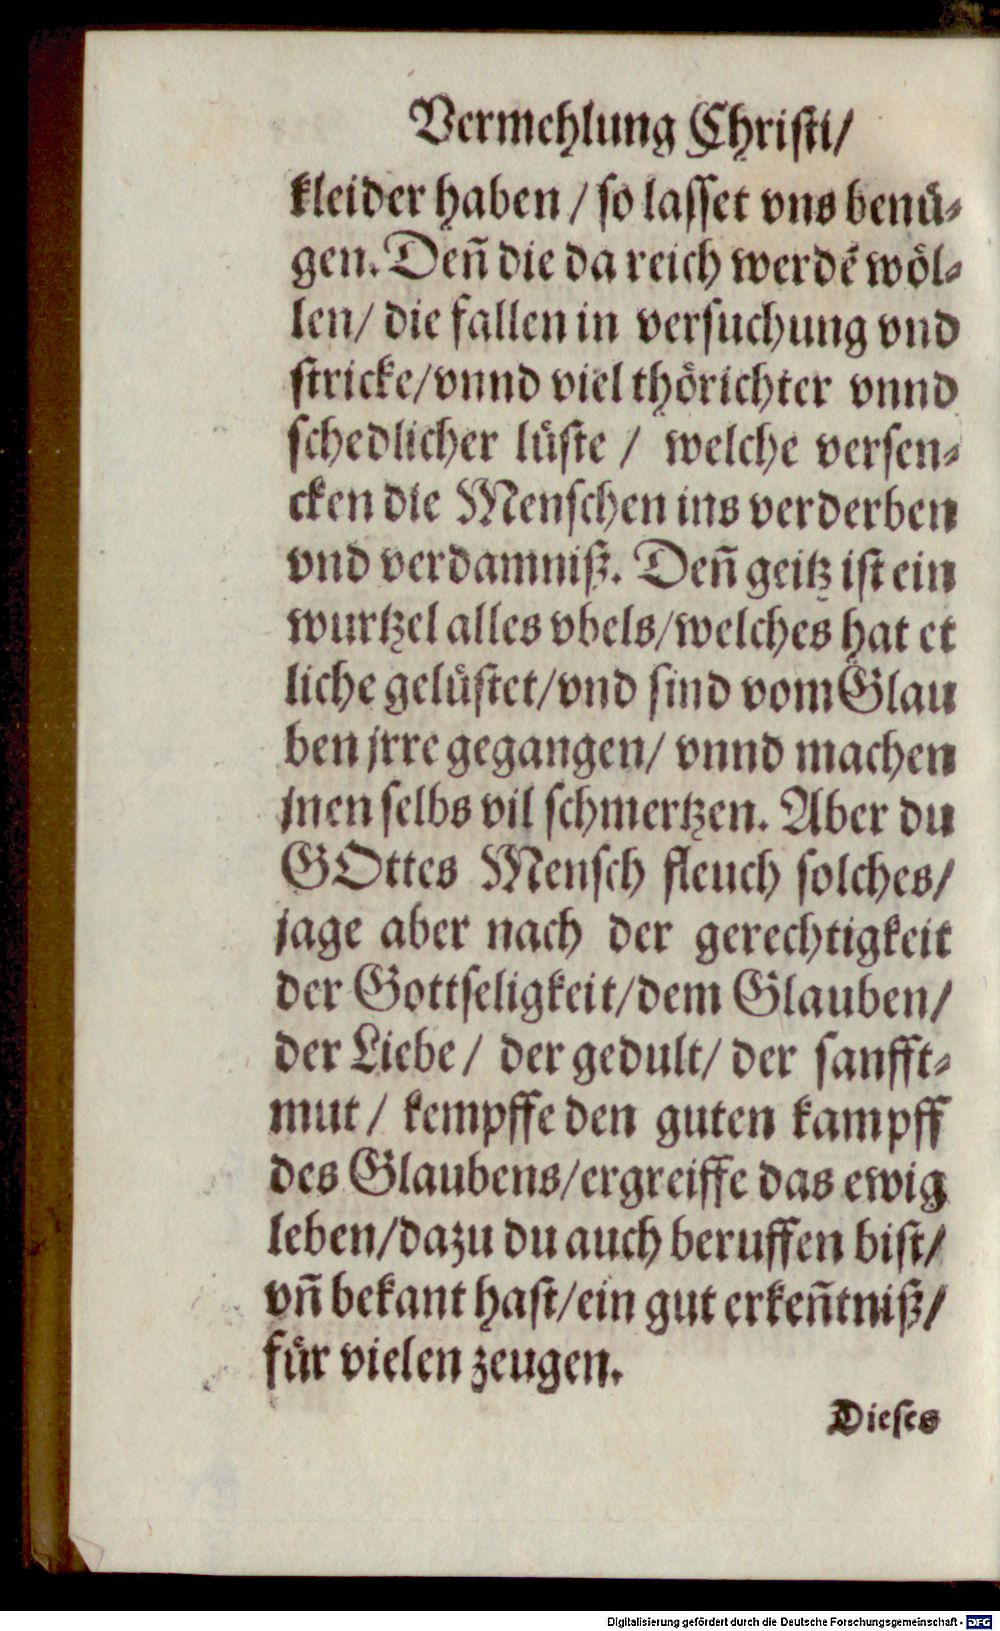 Vermehlung Christi/
kleider haben / so lasset vns benuͤ-
gen. Deñ die da reich werdẽ woͤl-
len/ die fallen in versuchung vnd
stricke/vnnd viel thoͤrichter vnnd
schedlicher luͤste / welche versen-
cken die Menschen ins verderben
vnd verdamniß. Deñ geitz ist ein
wurtzel alles vbels/welches hat et
liche geluͤstet/vnd sind vom Glau
ben jrre gegangen/ vnnd machen
jnen selbs vil schmertzen. Aber du
GOttes Mensch fleuch solches/
jage aber nach der gerechtigkeit
der Gottseligkeit/dem Glauben/
der Liebe / der gedult/ der sanfft-
mut / kempffe den guten kampff
des Glaubens/ergreiffe das ewig
leben/dazu du auch beruffen bist/
vñ bekant hast/ein gut erkeñtniß/
fuͤr vielen zeugen.
Dieses
Digitalisierung gefördert durch die Deutsche Forschungsgemeinschaft - DFG